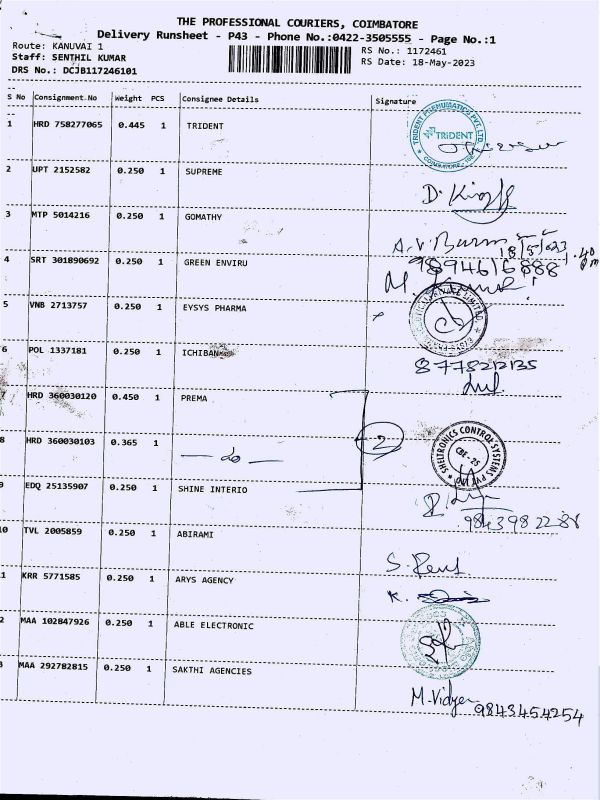 THE PROFESSIONAL COURIERS, COIMBATORE
Delivery Runsheet - P43 - Phone No.:0422-3505555 - Page No.:1
Route: KANUVAI 1
Staff: SENTHIL KUMAR
DRS No.: DCJB117246101
RS No.: 1172461
RS Date: 18-May-2023
S No Consignment.No Weight PCS Consignee Details Signature
1 HRD 758277065 0.445 1 TRIDENT
TRIDENT PNEUMATICS PVT. LTD.
TRIDENT
2 UPT 2152582 0.250 1 SUPREME
3 MTP 5014216 0.250 1 GOMATHY
4 SRT 301890692 0.250 1 GREEN ENVIRU
9894616888
5 VNB 2713757 0.250 1 EYSYS PHARMA
6 POL 1337181 0.250 1 ICHIBAN
8778212135
7 HRD 360030120 0.450 1 PREMA
2
8 HRD 360030103 0.365 1
SHELTRONICS CONTROL SYSTEMS PVT LTD
CBE - 25
9 EDQ 25135907 0.250 1 SHINE INTERIO
9843982288
0 TVL 2005859 0.250 1 ABIRAMI
1 KRR 5771585 0.250 1 ARYS AGENCY
K.
2 MAA 102847926 0.250 1 ABLE ELECTRONIC
3 MAA 292782815 0.250 1 SAKTHI AGENCIES
M.Vidya 9843454254